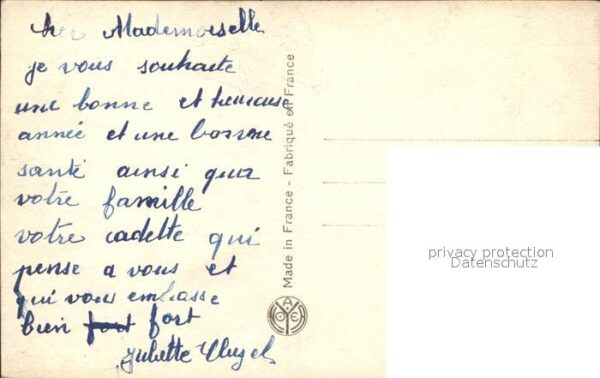 cher Mademoiselle
je vous souhaite
une bonne et heureuse
année et une bonne
santé ainsi que
votre famille
votre cadette qui
pense a vous et
qui vous embasse
bien fort fort
Juliette
Made in France - Fabriqué en France
privacy protection
Datenschutz